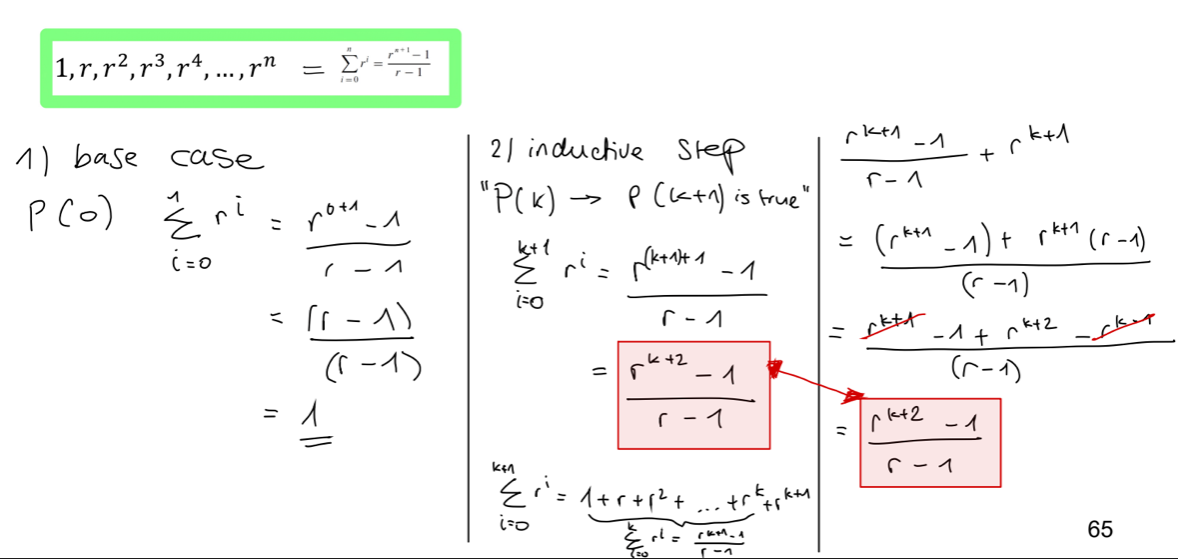 1, r, r², r³, r⁴, …, rⁿ = ∑_{i=0}^{n} rⁱ = (r^{n+1} − 1)/(r − 1)
1) base case
P(0) ∑_{i=0}^{1} rⁱ = (r^{0+1} − 1)/(r − 1)
= (r − 1)/(r − 1)
= 1
2) inductive step
"P(k) → P(k+1) is true"
∑_{i=0}^{k+1} rⁱ = (r^{(k+1)+1} − 1)/(r − 1)
= (r^{k+2} − 1)/(r − 1)
∑_{i=0}^{k+1} rⁱ = 1 + r + r² + … + r^k + r^{k+1}
∑_{i=0}^{k} rⁱ = (r^{k+1} − 1)/(r − 1)
(r^{k+1} − 1)/(r − 1) + r^{k+1}
= ((r^{k+1} − 1) + r^{k+1}(r − 1))/(r − 1)
= (r^{k+1} − 1 + r^{k+2} − r^{k+1})/(r − 1)
= (r^{k+2} − 1)/(r − 1)
65